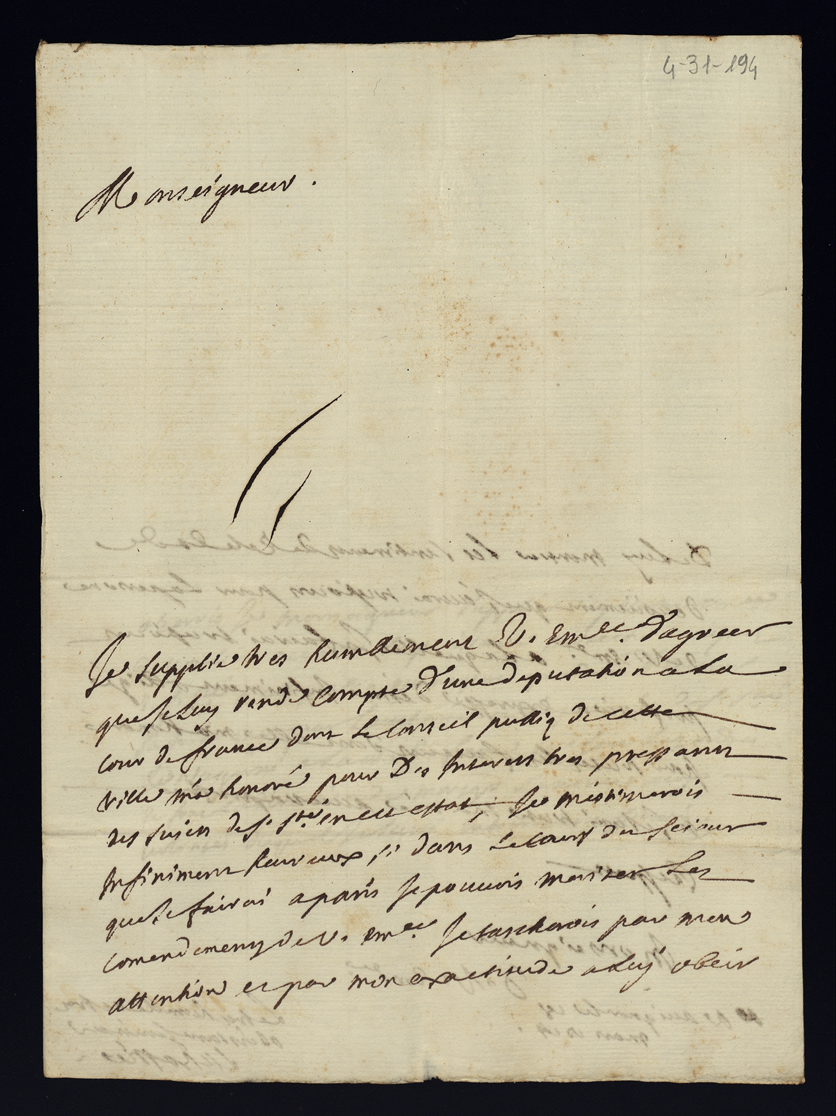 4-31-194
Monseigneur.
Je supplie tres humblement V. Em.ce d'agreer
que je luy rende compte d'une deputation a la
cour de france dont le Conseil publiq de cette
ville m'a honoré pour Des Interets tres pressants
des sujets de s. s.té en cet estat, Je m'estimerois
Infiniment heureux, si dans le cours du sejour
que je fairai a paris je pouvois meriter les
comendements de V. Em.ce Je tascherois par mon
attention et par mon exactitude a luy obeir